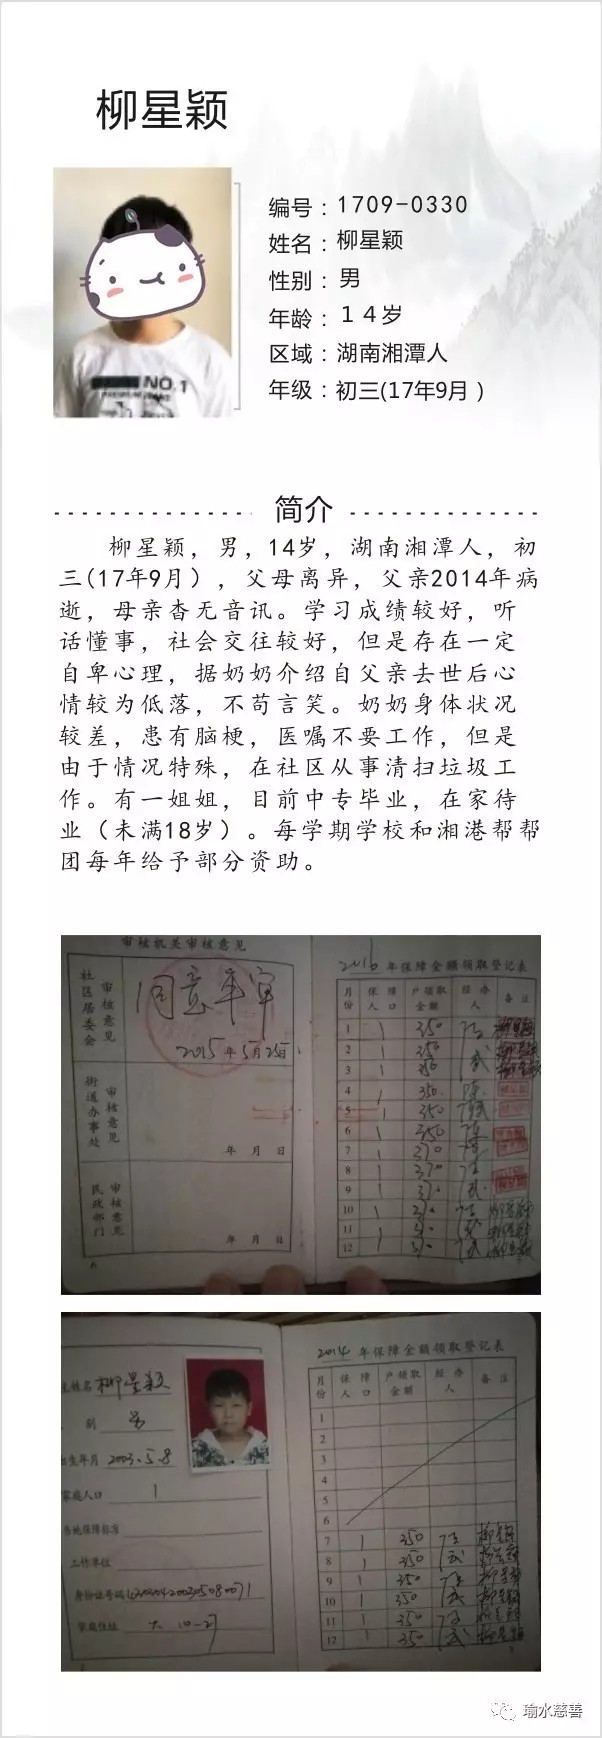 柳星颖
NO.1
编号：1709-0330
姓名：柳星颖
性别：男
年龄：14岁
区域：湖南湘潭人
年级：初三(17年9月)
简介
柳星颖，男，14岁，湖南湘潭人，初
三(17年9月），父母离异，父亲2014年病
逝，母亲杳无音讯。学习成绩较好，听
话懂事，社会交往较好，但是存在一定
自卑心理，据奶奶介绍自父亲去世后心
情较为低落，不苟言笑。奶奶身体状况
较差，患有脑梗，医嘱不要工作，但是
由于情况特殊，在社区从事清扫垃圾工
作。有一姐姐，目前中专毕业，在家待
业（未满18岁）。每学期学校和湘港帮帮
团每年给予部分资助。
审核机关审核意见
社区居委会 审核意见
同意年审
2015年5月25日
街道办事处 审核意见
年 月 日
民政部门 审核意见
年 月 日
6
2016年保障金额领取登记表
月份 保障人口 户领取金额 经办人 备注
1 1 350 柳星颖
2 1 350 柳星颖
3 1 350 柳星颖
4 1 350
5 1 350
6 1 350
7 1 370
8 1 370
9 1 370
10 1
11 1
12 1
姓名 柳星颖
别 男
出生年月 2003.5.8
家庭人口 1
当地保障标准
工作单位
身份证号码
家庭住址
2014年保障金额领取登记表
月份 保障人口 户领取金额 经办人 备注
1
2
3
4
5
6
7 1 350 柳星颖
8 1 350 柳星颖
9 1 350 柳星颖
10 1 350 柳星颖
11 1 350 柳星颖
12 1 350 柳星颖
瑜水慈善